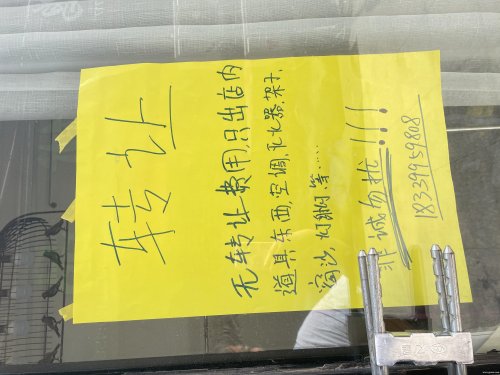 转让
无转让费用,只出店内
道具东西,空调,化器,架子,
沙,灯棚,等.....
非诚勿扰!!!
18339959808